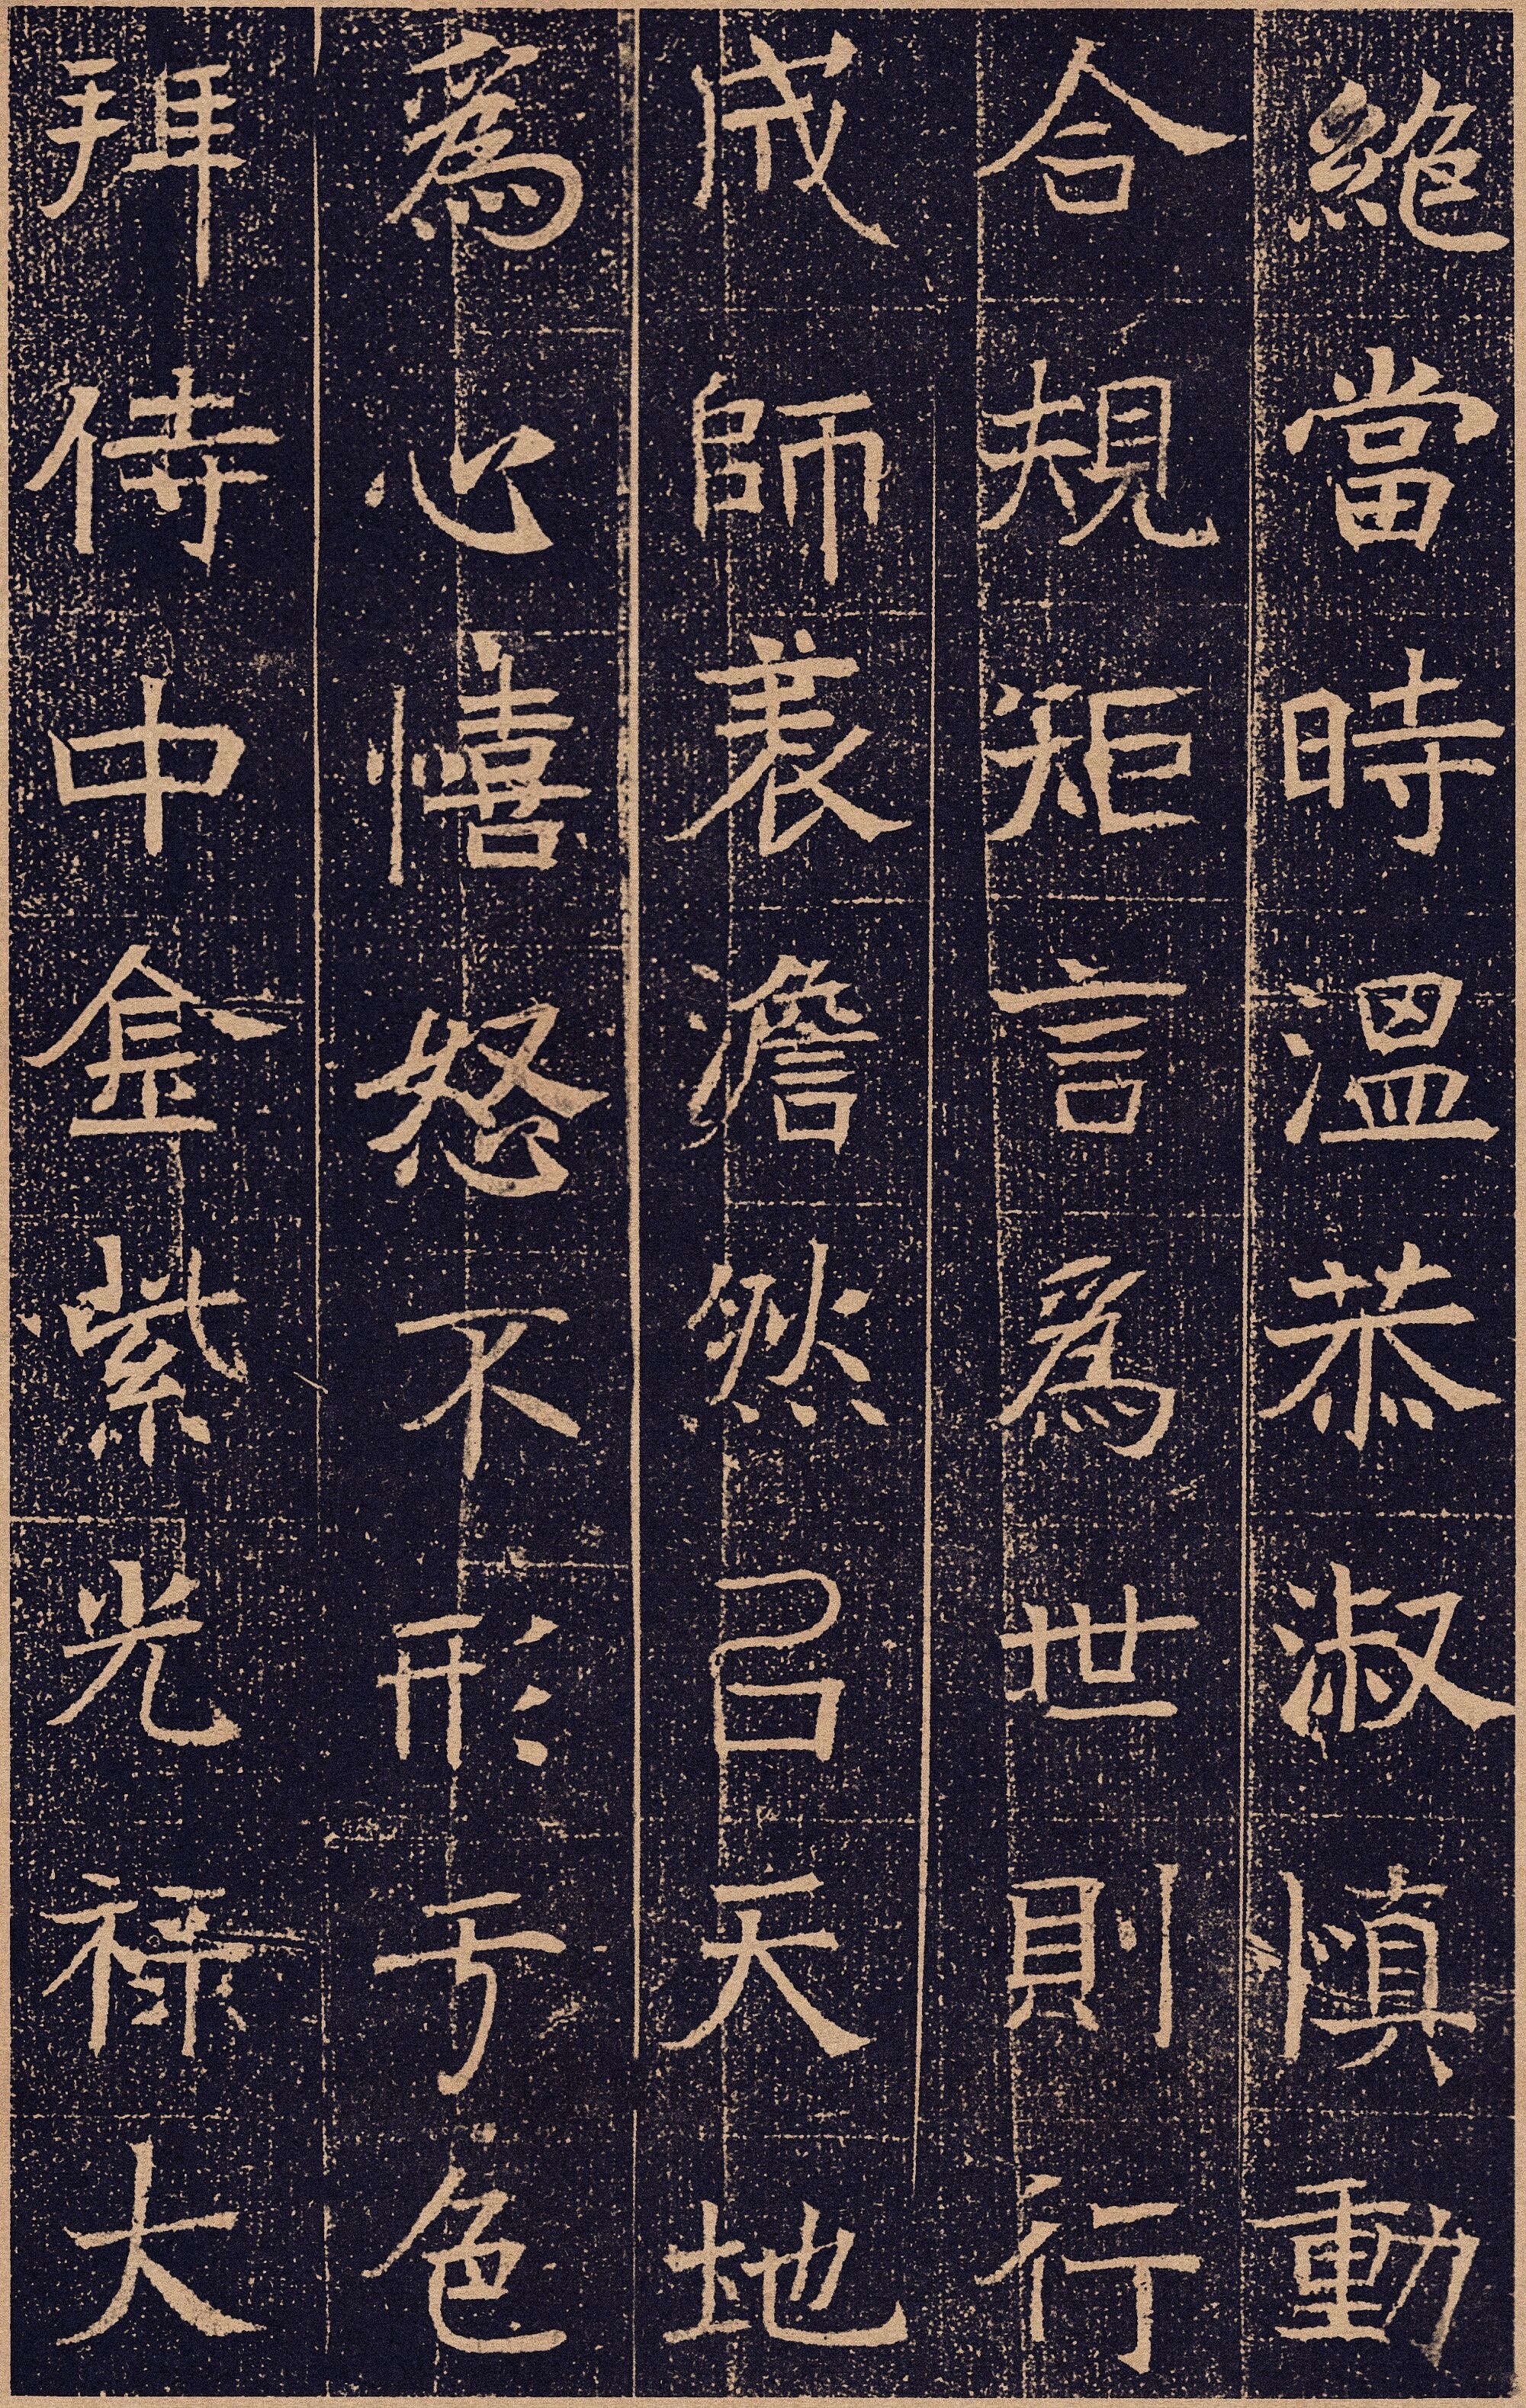 絶當時溫恭淑慎動
合規矩言爲世則行
成師表澹然以天地
爲心憘怒不形于色
拜侍中金紫光祿大